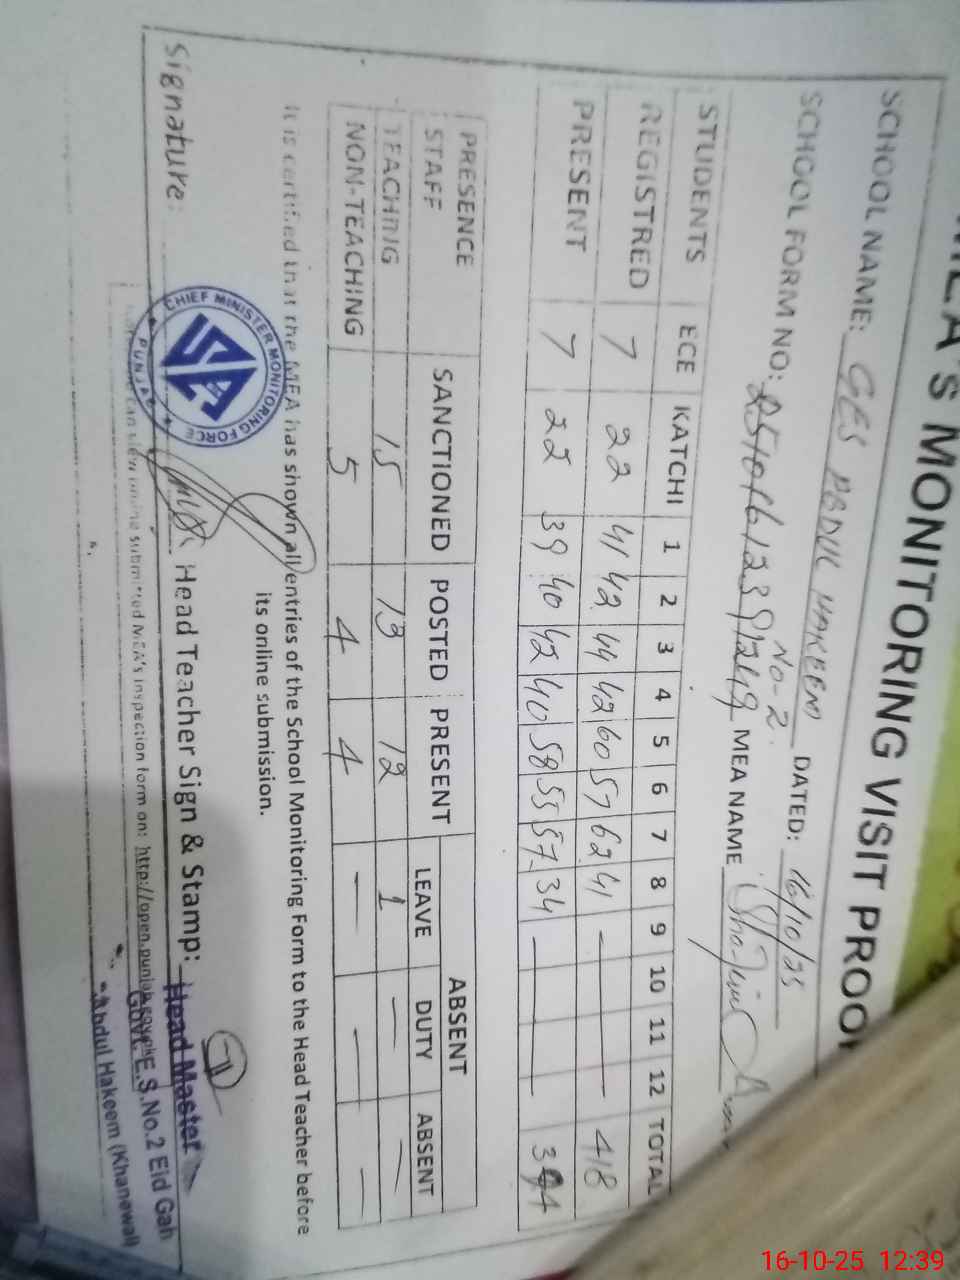 MEA'S MONITORING VISIT PROOF
SCHOOL NAME: GES ABDUL HAKEEM No-2 DATED: 16/10/25
SCHOOL FORM NO: MEA NAME
STUDENTS ECE KATCHI 1 2 3 4 5 6 7 8 9 10 11 12 TOTAL
REGISTRED 7 22 41 42 44 42 60 57 62 41 — 418
PRESENT 7 22 39 40 42 40 58 55 57 34 — 394
PRESENCE ABSENT
STAFF SANCTIONED POSTED PRESENT LEAVE DUTY ABSENT
TEACHNIG 15 13 12 1 — —
NON-TEACHING 5 4 4 — — —
It is certified that the MEA has shown all entries of the School Monitoring Form to the Head Teacher before
its online submission.
Signature: Head Teacher Sign & Stamp:
CHIEF MINISTER MONITORING FORCE
PUNJAB
Head Master
Govt. E.S.No.2 Eid Gah
Abdul Hakeem (Khanewal)
can view online submitted MEA's inspection form on: http://open.punjab.gov.pk
16-10-25 12:39